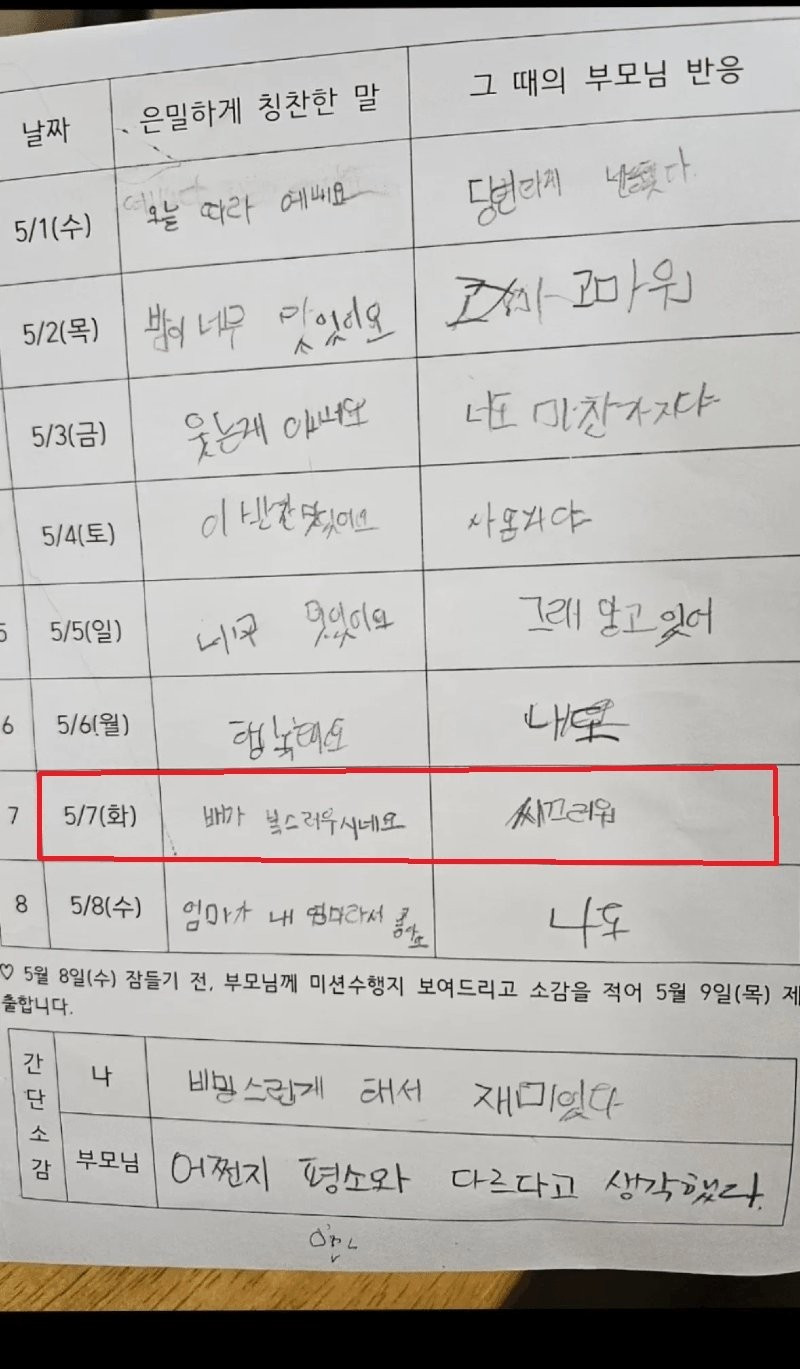 날짜 은밀하게 칭찬한 말 그 때의 부모님 반응
5/1(수) 오늘 따라 예뻐요 당연하지
5/2(목) 밥이 너무 맛있어요 고마워
5/3(금) 웃는게 너도 마찬가지야
5/4(토) 이 반찬 맛있어요
5 5/5(일) 그래 알고 있어
6 5/6(월) 행복해요
7 5/7(화) 배가 복스러우시네요 씨끄러워
8 5/8(수) 엄마가 내 엄마라서 좋아요 나도
♡ 5월 8일(수) 잠들기 전, 부모님께 미션수행지 보여드리고 소감을 적어 5월 9일(목) 제
출합니다.
간단소감
나 비밍스런게 태서 재미있다
부모님 어쩐지 평소와 다르다고 생각했다.